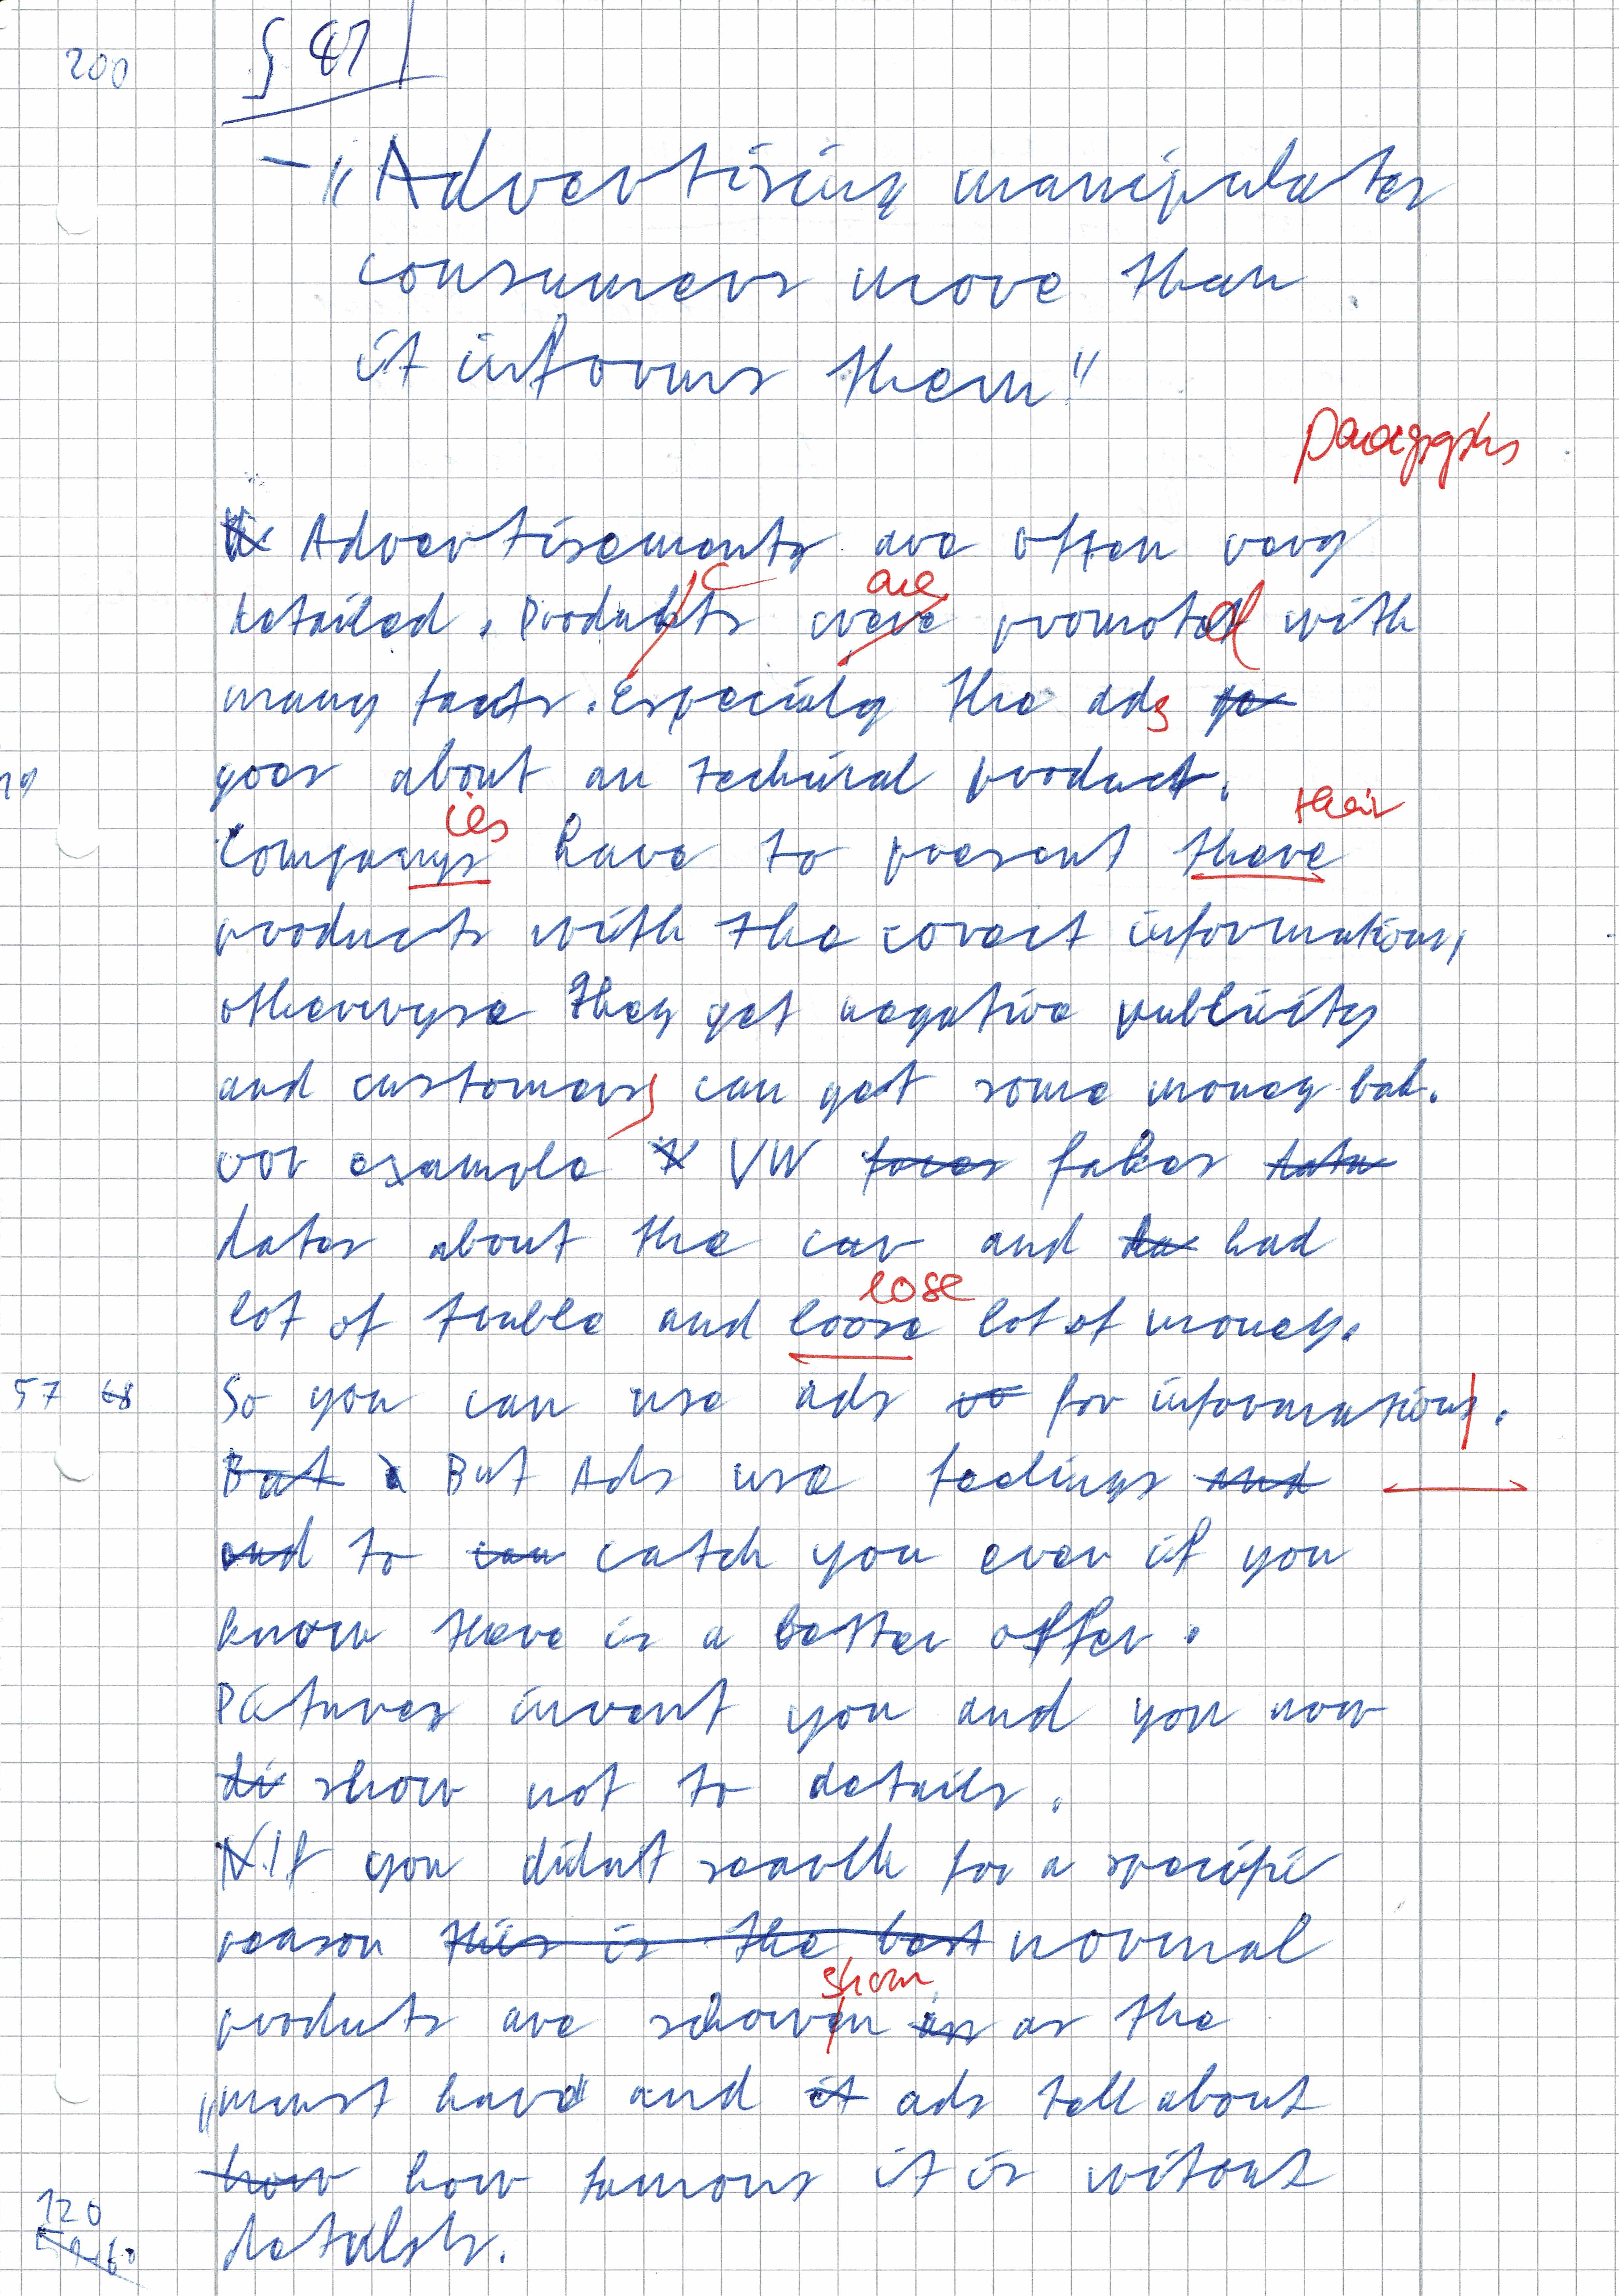 200
§ 47
- "Advertising manipulates
consumers more than
it informs them"
paragraphs
Advertisements are often very
detailed. Produkts were promoted with
c are d
many facts. Especialy the ads
goes about an technical product.
ies their
Companys have to present there
products with the corect informations,
otherwyse they get negative publicity
and customers can get some money bak.
vor example VW faces fakes data
dates about the car and ha had
lot of trouble and loose lot of money.
lose
57 68 So you can use ads for informations.
But But Ads use feelings and
and to can catch you even if you
know there is a better offer.
Pictures invent you and you now
di show not to details.
N If you didn't search for a specifi
reason this is the best normal
products are schowen as the
shown
"must have" and it ads tell about
how how famous it is witout
120 detailsts.